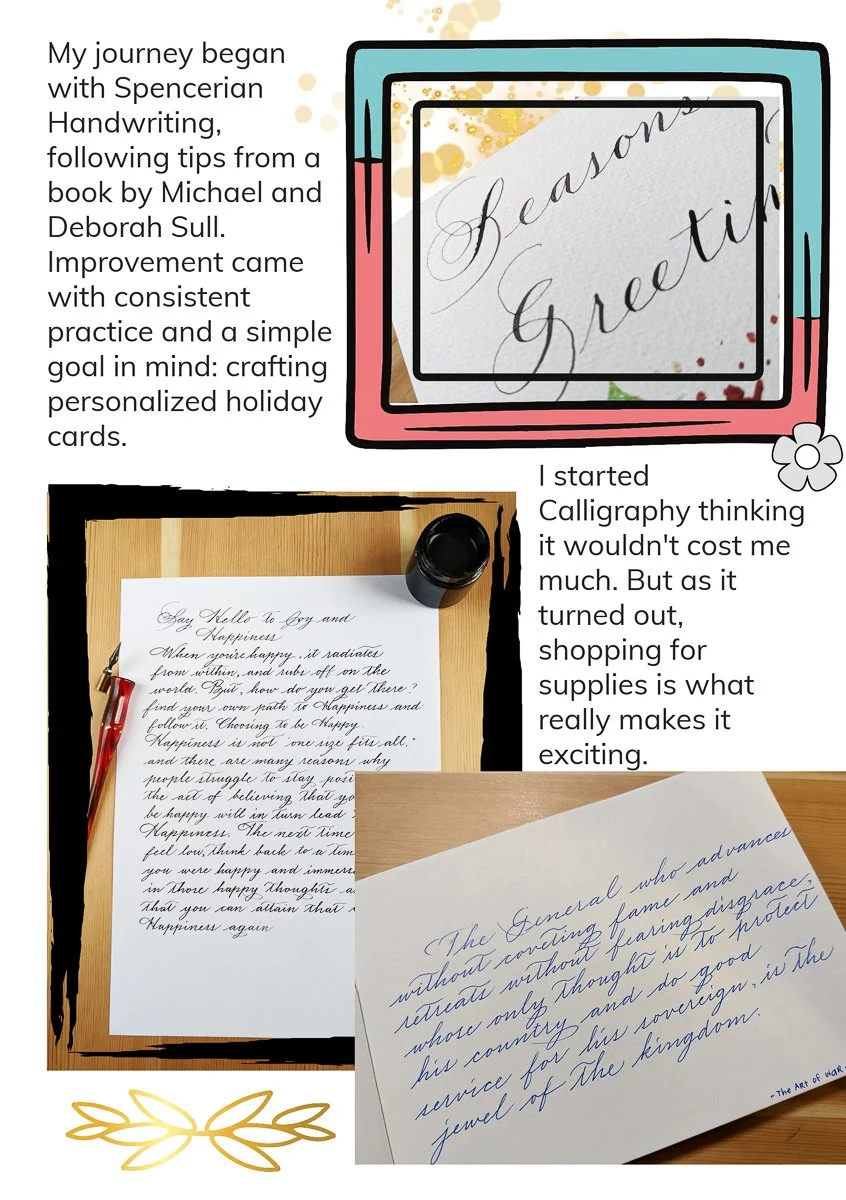 My journey began
with Spencerian
Handwriting,
following tips from a
book by Michael and
Deborah Sull.
Improvement came
with consistent
practice and a simple
goal in mind: crafting
personalized holiday
cards.
Seasons
Greetin
I started
Calligraphy thinking
it wouldn't cost me
much. But as it
turned out,
shopping for
supplies is what
really makes it
exciting.
Say Hello to Joy and
Happiness
When you're happy, it radiates
from within, and rubs off on the
world. But, how do you get there?
find your own path to Happiness and
follow it. Choosing to be Happy.
Happiness is not "one size fits all,"
and there are many reasons why
people struggle to stay posi
the act of believing that yo
be happy will in turn lead
Happiness. The next time
feel low, think back to a tim
you were happy and immers
in those happy thoughts a
that you can attain that
Happiness again
The General who advances
without coveting fame and
retreats without fearing disgrace,
whose only thought is to protect
his country and do good
service for his sovereign, is the
jewel of the kingdom.
- The Art of War -